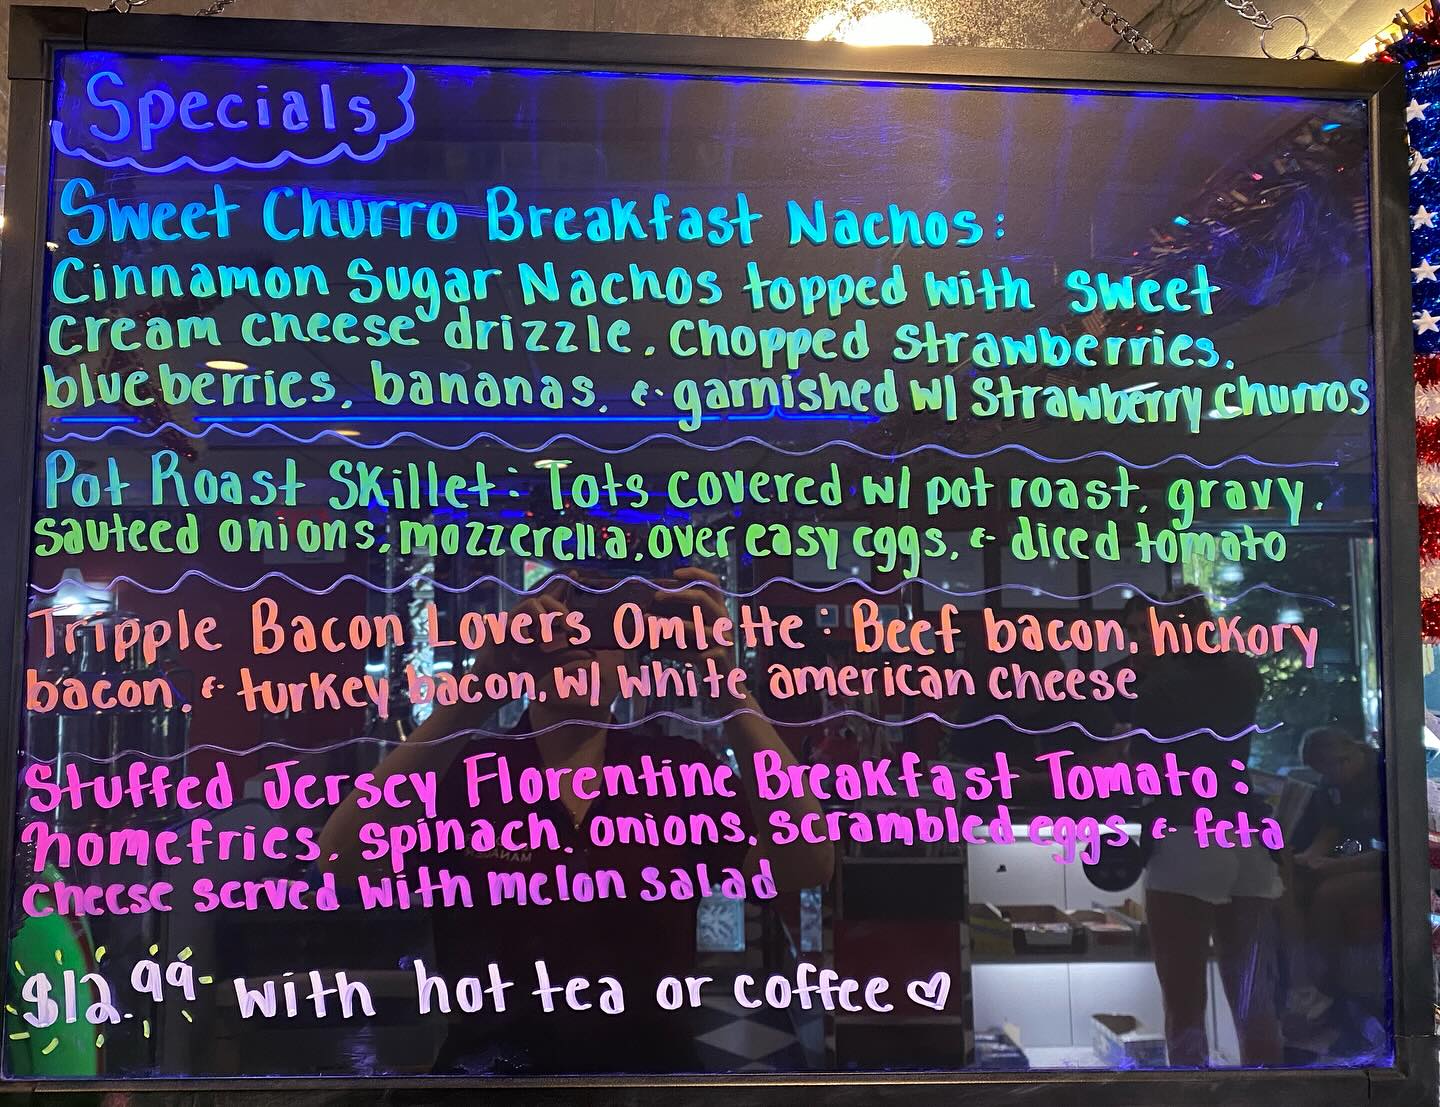 Specials
Sweet Churro Breakfast Nachos:
Cinnamon Sugar Nachos topped with Sweet
Cream cheese drizzle, Chopped Strawberries,
blueberries, bananas, & garnished w/ Strawberry churros
Pot Roast Skillet: Tots covered w/ pot roast, gravy,
sauteed onions, mozzerella, over easy eggs, & diced tomato
Tripple Bacon Lovers Omlette: Beef bacon, hickory
bacon, & turkey bacon, w/ white american cheese
Stuffed Jersey Florentine Breakfast Tomato:
homefries, spinach, onions, scrambled eggs & feta
cheese served with melon salad
$12.99 with hot tea or coffee